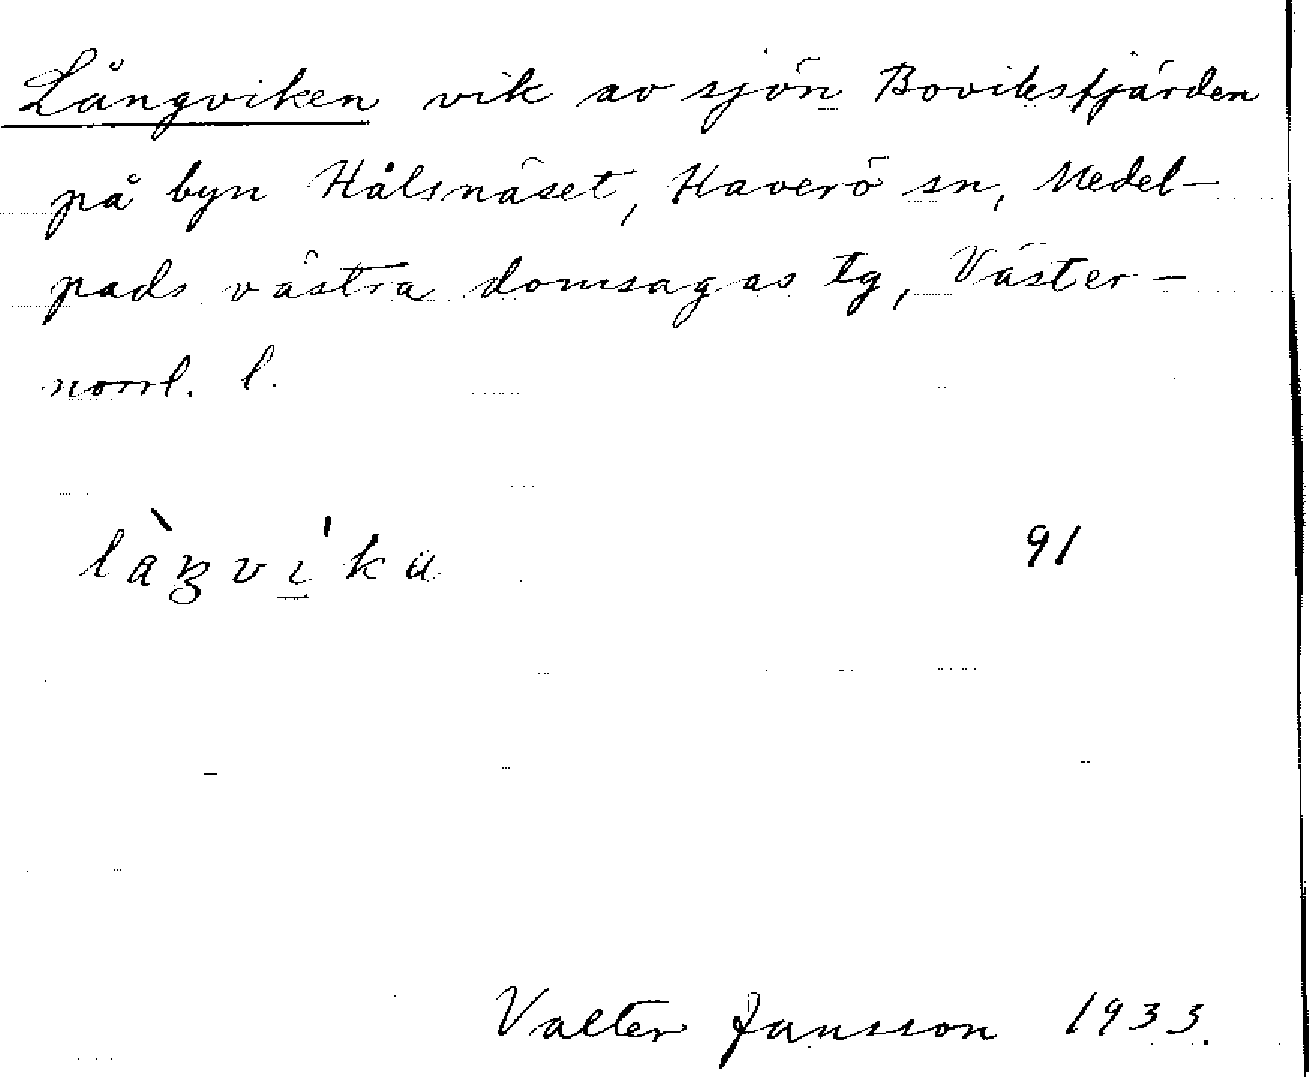 Långviken vik av sjön Boviksfjärden
på byn Hålsnäset, Haverö sn, Medel-
pads västra domsagas tg, Väster-
norrl. l.
91
Valter Jansson 1933.